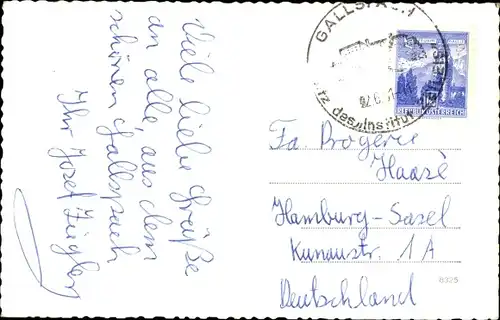 Viele liebe Grüße
an alle, aus dem
schönen Gallspach
Ihr Josef Ziegler
GALLSPACH
des Institut
REPUBLIK ÖSTERREICH
Fa. Drogerie
Haase
Hamburg-Sasel
Kunaustr. 1A
Deutschland
8325